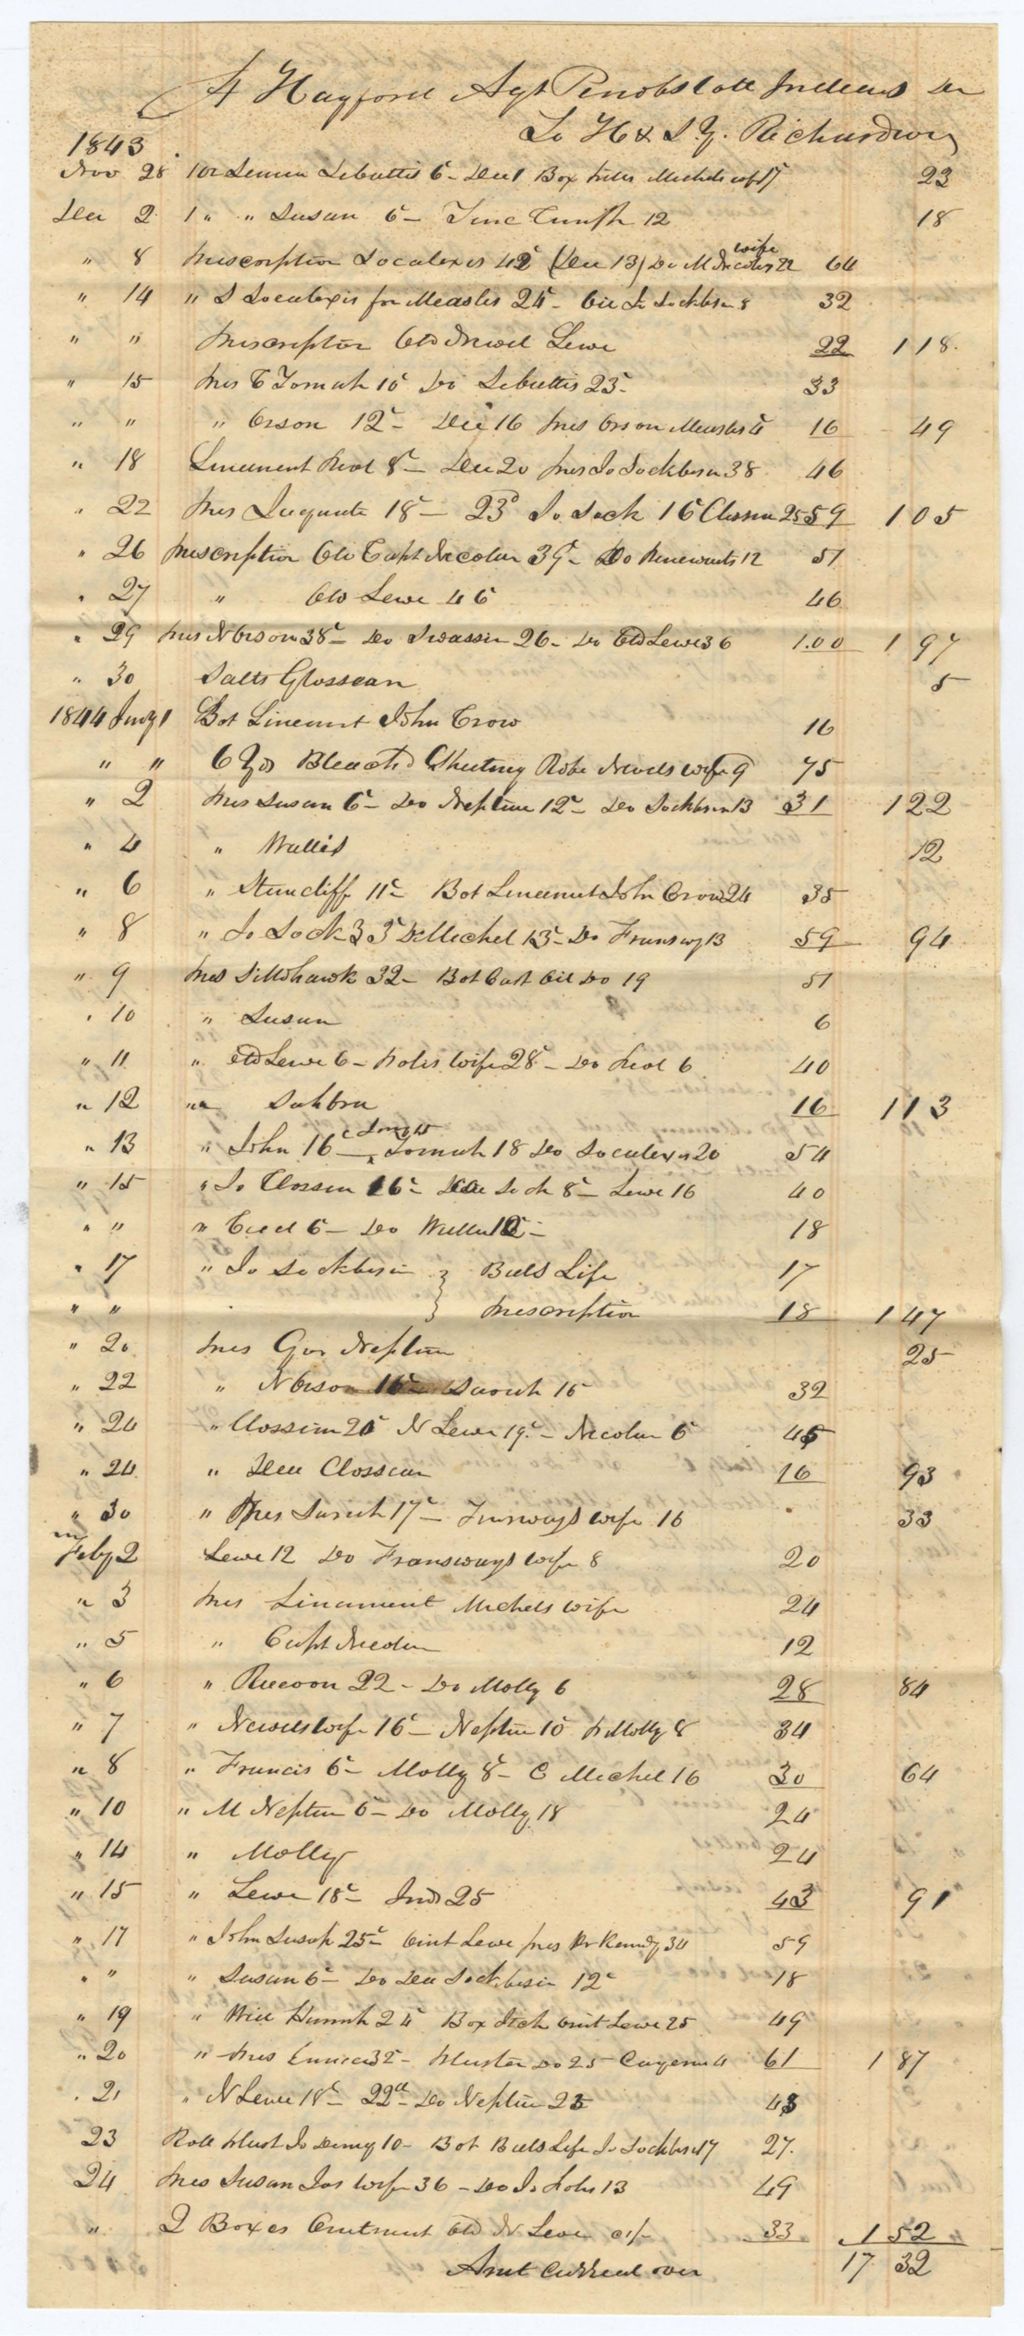 A Hayford Agt Penobscott Indians Dr
To H & S Y. Richardson
1843
Nov 28 1 oz Senna Sebattis 6c Dec 1 Box Pills Michels wf 17 23
Dec 2 1 " " Susan 6c Tinc 12 18
" 8 Prescription Socalexis 42c (Dec 13) Do M Nicolas wife 22 64
" 14 " S Socalexis for Measles 24c Oil Jo Sockbesin 8 32
" " Prescription Old Newel Lewe 22 1 18
" 15 Pres T Tomah 10c Do Sebattis 23c 33
" " " Orson 12c Dec 16 Pres Orson Measles 4 16 49
" 18 Linement Peol 8c Dec 20 Pres Jo Sockbesin 38 46
" 22 Pres 18c 23d Jo Sock 16c Clossin 25 59 1 05
" 26 Prescription Old Capt Nicolar 39c Do 12 51
" 27 " Old Lewe 46 46
" 29 Pres N Orson 38c Do Swassin 26 Do Old Lewe 36 1.00 1 97
" 30 Salts Glossean 5
1844 Jany 1 Bot Linement John Crow 16
" " 6 Yds Bleached Sheeting Robe Newels wife 75
" 2 Pres Susan 6c Do Neptune 12c Do Sockbesin 13 31 1 22
" 4 " Wallis 12
" 6 " Stuncliff 11c Bot Linement John Crow 24 35
" 8 " Jo Sock 33c Do Michel 13c Do Fransway 13 59 94
" 9 Pres S Mohawk 32 Bot Cast Oil Do 19 51
" 10 " Susan 6
" 11 " Old Lewe 6 Poles wife 28c Do Peol 6 40
" 12 " 16 1 13
" 13 " John 16c Tomah 18 Do Socalexis 20 54
" 15 " Jo Clossin 16c Dea Sock 8c Lewe 16 40
" " " 6c Do 12c 18
" 17 " Jo Sockbesin } Buls Life 17
" " } Prescription 18 1 47
" 20 Pres Gov Neptune 25
" 22 " N Orson 16c Sarah 16 32
" 24 " Clossin 20 N Lewe 19c Nicolar 6c 45
" 24 " Dea Clossean 16 93
" 30 " Pres Sarah 17c Fransways wife 16 33
Feby 2 Lewe 12 Do Fransways wife 8 20
" 3 Pres Linament Michels wife 24
" 5 " Capt Nicolar 12
" 6 " Racoon 22 Do Molly 6 28 84
" 7 " Newels wife 16c Neptune 10 Molly 8 34
" 8 " Francis 6c Molly 8c C Michel 16 30 64
" 10 " M Neptune 6c Do Molly 18 24
" 14 " Molly 24
" 15 " Lewe 18c 25 43 91
" 17 " John Susap 25c Oint Lewe pres 34 59
" " " Susan 6c Do Dea Sockbesin 12c 18
" 19 " Will Hannah 24c Box Itch Oint Lewe 25 49
" 20 " Pres 32 Plaster Do 25 Cayenne 4 61 1 87
" 21 " N Lewe 18c 22d Do Neptune 25 43
23 Roll Plast Jo 10 Bot Buls Life Jo Sockbesin 17 27
24 Pres Susan Jos wife 36 Do Jo 13 49
" 2 Boxes Ointment Old N Lewe 33 1 52
Amt carried over 17 32